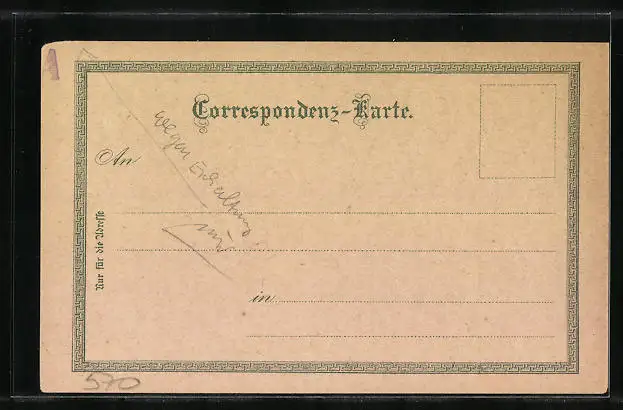 A
Correspondenz-Karte.
An
wegen Erhaltung
Nur für die Adresse
in
570